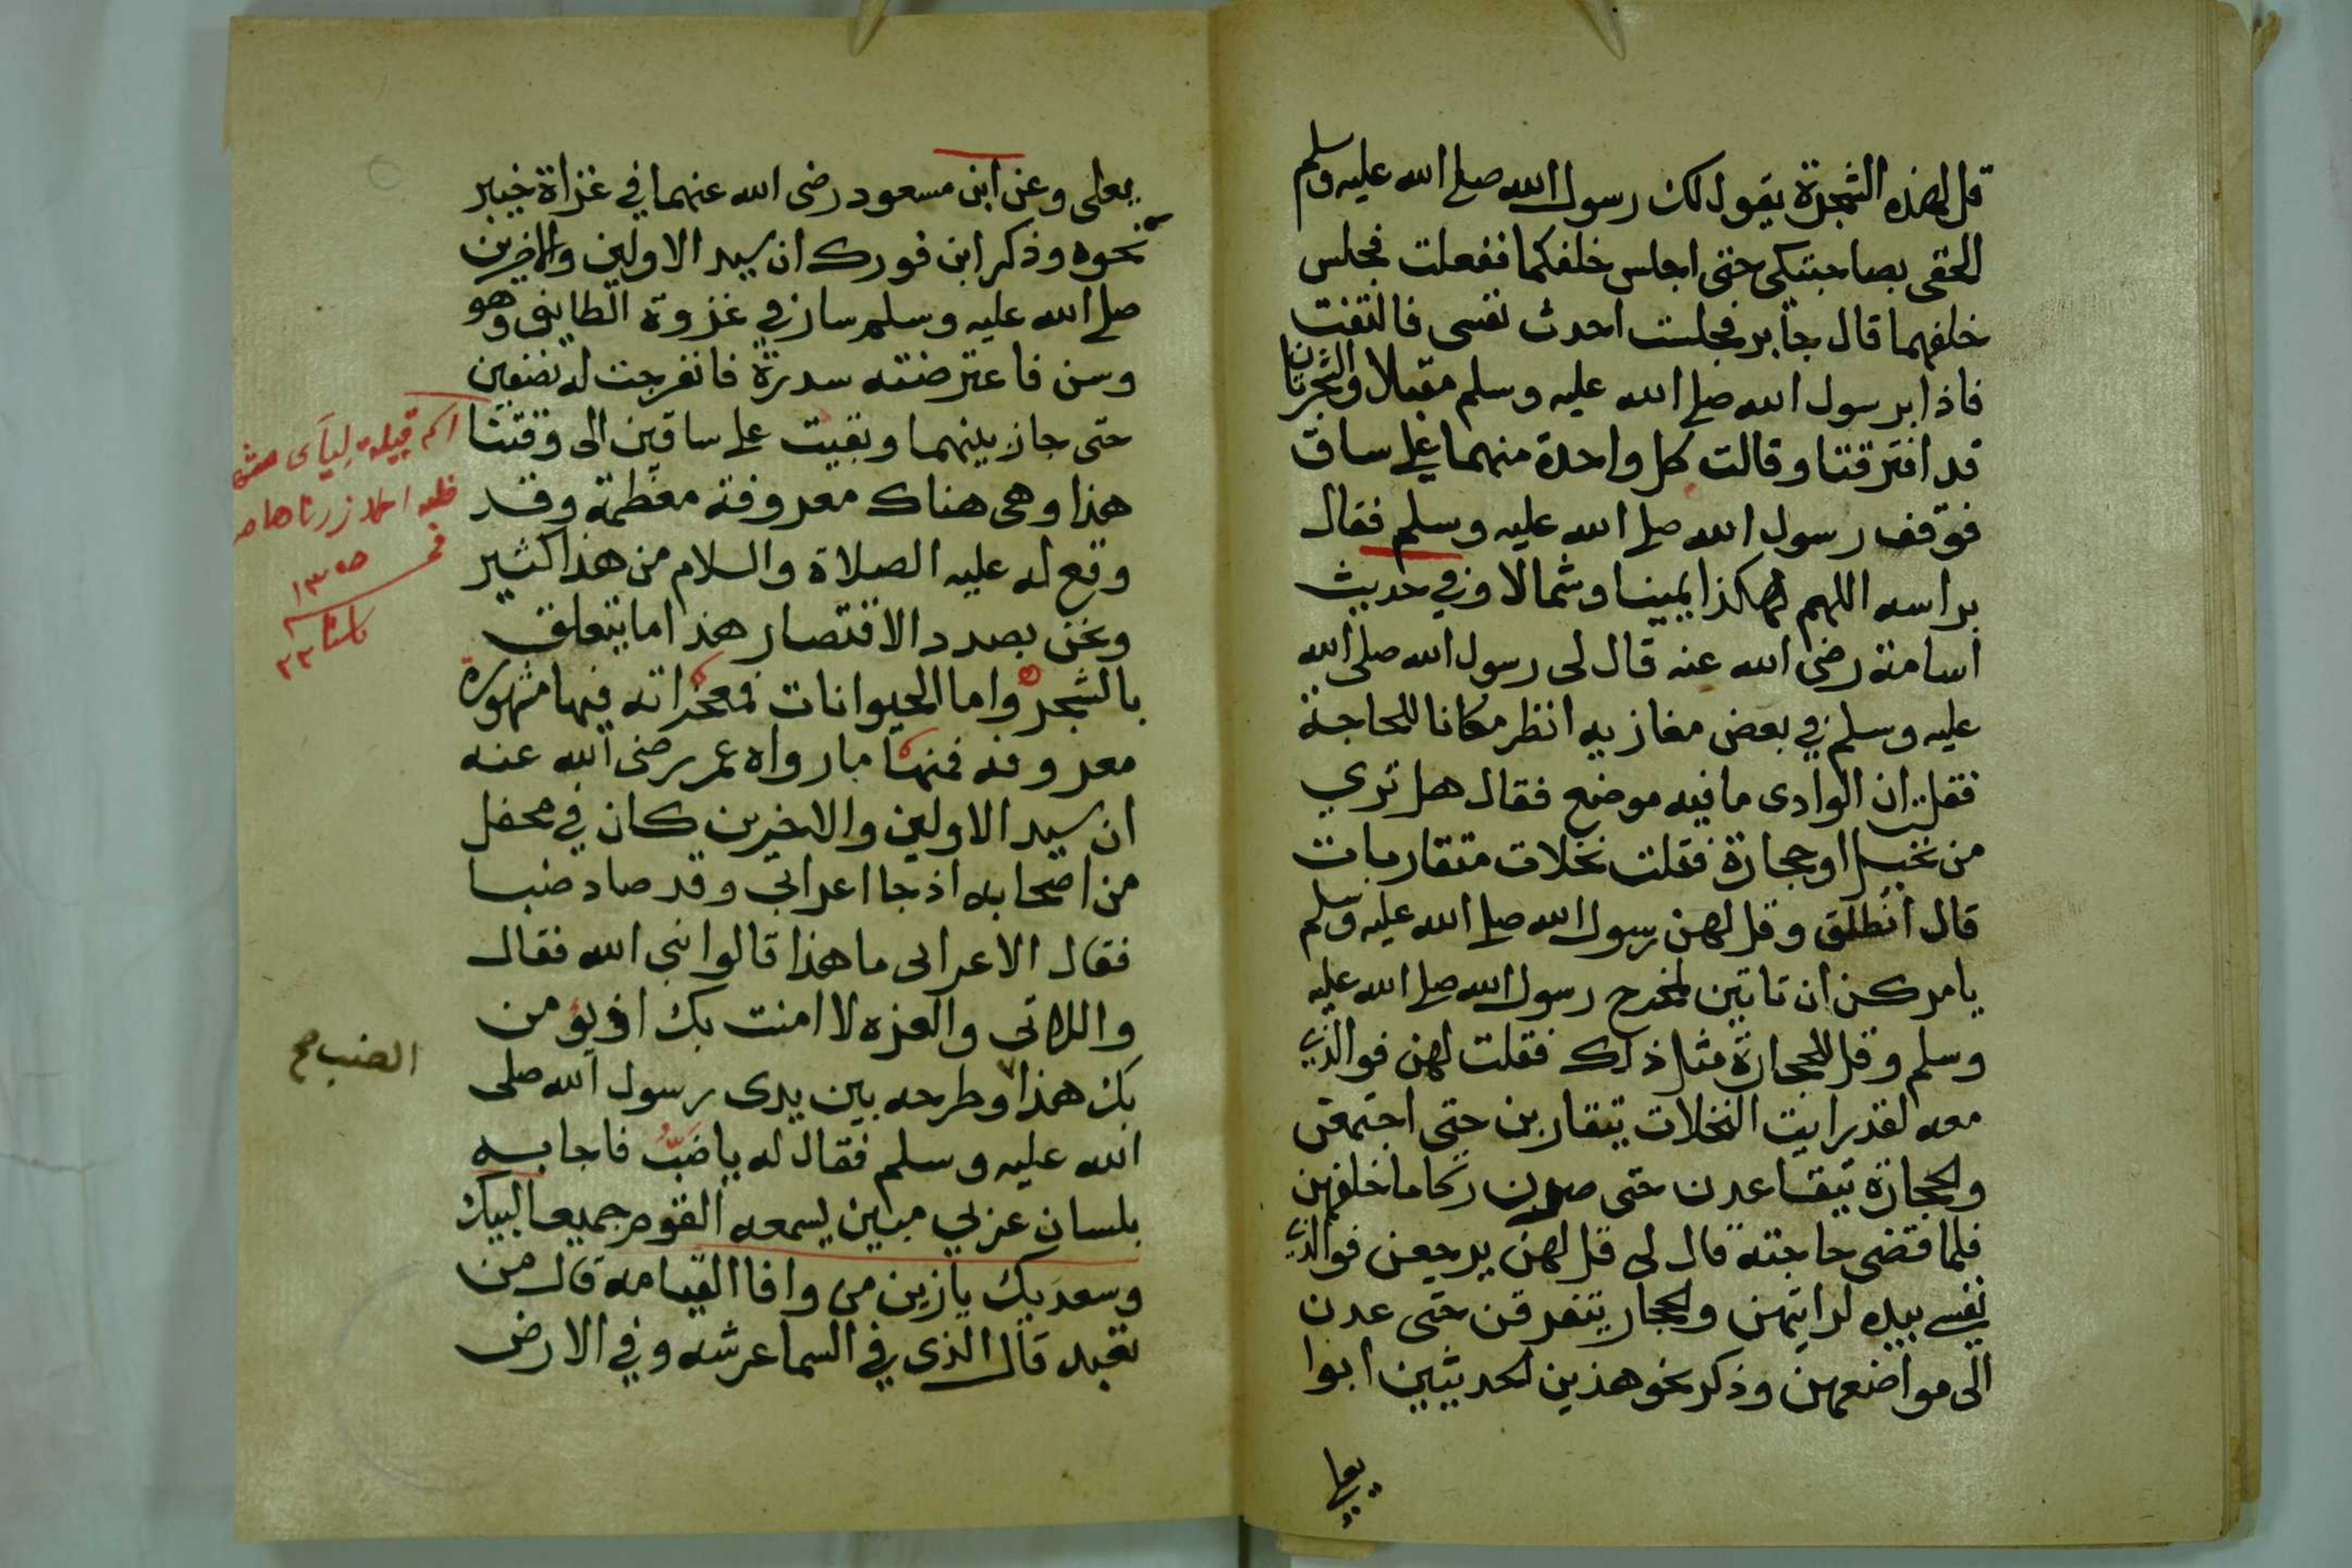 قل لهذه الشجرة يقول لك رسول الله صلى الله عليه وسلم
الحقى بصاحبتكى حتى اجلس خلفكما ففعلت فجلس
خلفهما قال جابر فجلست احدث نفسى فالتفت
فاذا برسول الله صلى الله عليه وسلم مقبلا والشجرتان
قد افترقتا وقالت كل واحدة منهما على ساق
فوقف رسول الله صلى الله عليه وسلم فقال
براسه اللهم هكذا يمينا وشمالا وفي حديث
اسامة رضى الله عنه قال لى رسول الله صلى الله
عليه وسلم في بعض مغازيه انظر مكانا للحاجة
فقلت ان الوادى ما فيه موضع فقال هل تري
من نخيل او حجارة فقلت نخلات متقاربات
قال انطلق وقل لهن رسول الله صلى الله عليه وسلم
يامركن ان تاتين لمخرج رسول الله صلى الله عليه
وسلم وقل للحجارة مثل ذلك فقلت لهن فوالذي
معه لقد رايت النخلات يتقاربن حتى اجتمعن
والحجارة يتقاعدن حتى صرن ركاما خلفهن
فلما قضى حاجته قال لى قل لهن يرجعن فوالذي
نفسي بيده لرايتهن والحجار يتفرقن حتى عدن
الى مواضعهن وذكر نحو هذين الحديثين ابوا
يعلى
يعلى وعن ابن مسعود رضى الله عنهما في غزاة خيبر
نحوه وذكر ابن فورك ان سيد الاولين والاخرين
صلى الله عليه وسلم سار في غزوة الطايف وهو
وسن فاعترضته سدرة فانفرجت له نصفين
حتى جاز بينهما وبقيت على ساقين الى وقتنا
هذا وهى هناك معروفة معظمة وقد
وقع له عليه الصلاة والسلام من هذا كثير
ونحن بصدد الاقتصار هذا ما يتعلق
بالشجر واما الحيوانات فمعجزاته فيها مشهورة
معروفه فمنها ما رواه عمر رضى الله عنه
ان سيد الاولين والاخرين كان في محفل
من اصحابه اذ جا اعرابي وقد صاد ضبا
فقال الاعرابى ما هذا قالوا نبي الله فقال
واللاتى والعزه لا امنت بك او يؤمن
بك هذا وطرحه بين يدى رسول الله صلى
الله عليه وسلم فقال له يا ضب فاجابه
بلسان عربي مبين يسمعه القوم جميعا لبيك
وسعديك يا زين من وافا القيامه قال من
تعبد قال الذى في السما عرشه وفي الارض
١٣٥٥
٢٢
الضب صح